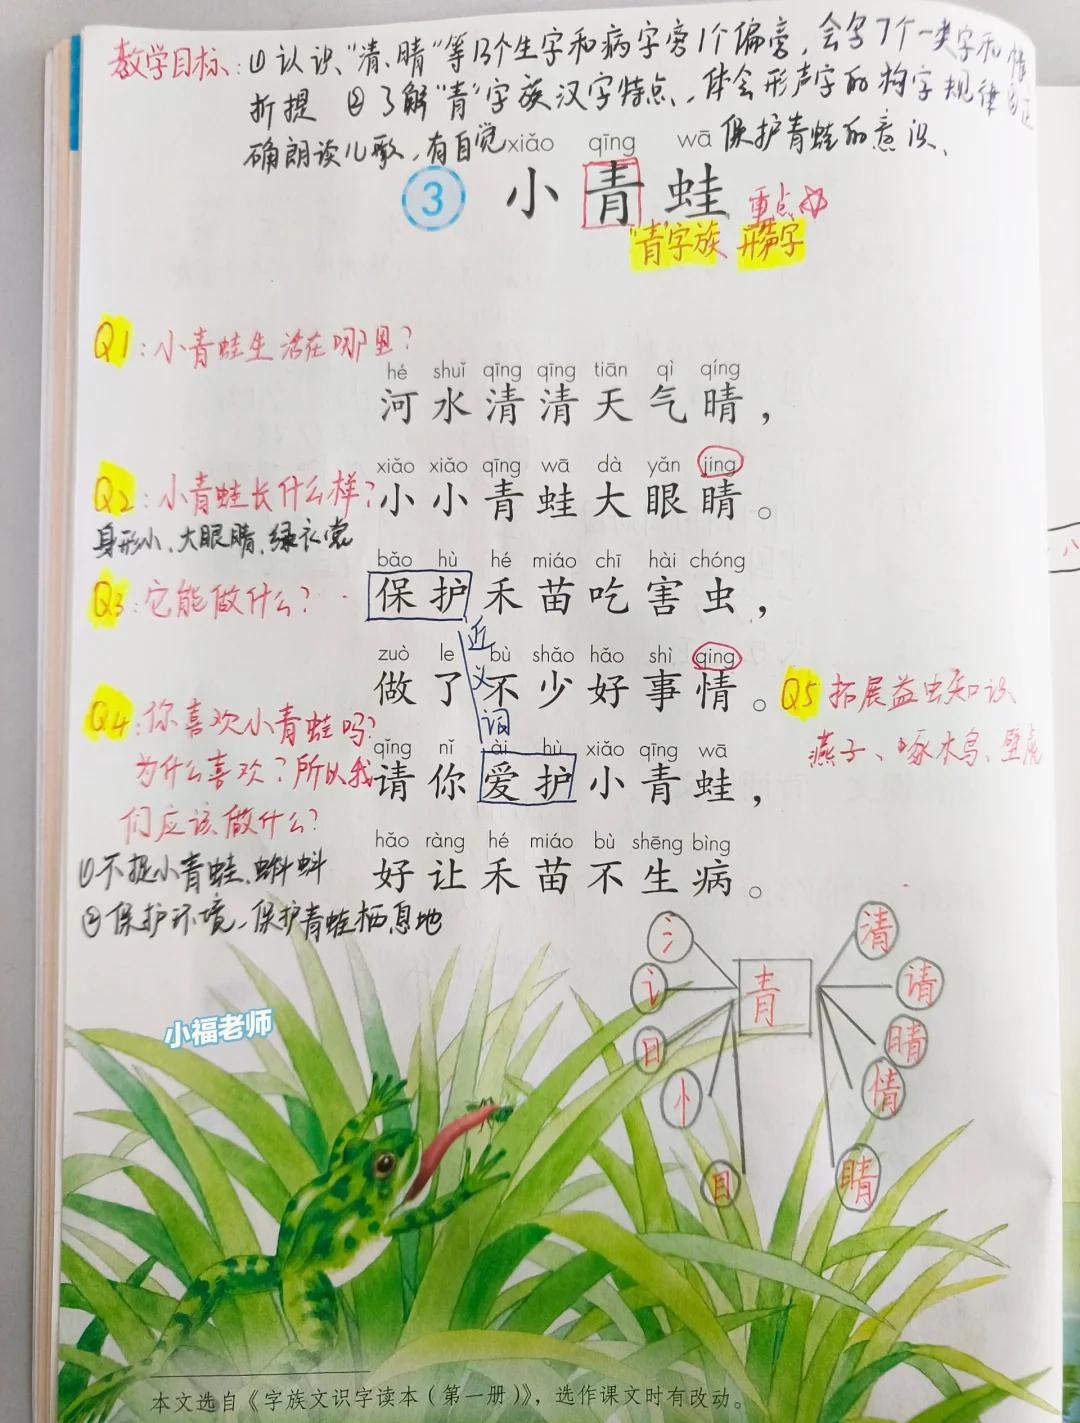 教学目标:①认识“清、晴”等13个生字和病字旁1个偏旁,会写7个一类字和
折提 ②了解“青”字族汉字特点,体会形声字的构字规律③正
确朗读儿歌,有自觉保护青蛙的意识、
xiǎo qīng wā
3 小青蛙
重点
“青”字族 形声字
Q1:小青蛙生活在哪里?
hé shuǐ qīng qīng tiān qì qíng
河水清清天气晴,
xiǎo xiǎo qīng wā dà yǎn jing
Q2:小青蛙长什么样?
小小青蛙大眼睛。
身形小、大眼睛、绿衣裳
bǎo hù hé miáo chī hài chóng
Q3:它能做什么?
保护禾苗吃害虫,
近义词
zuò le bù shǎo hǎo shì qing
做了不少好事情。
Q5 拓展益虫知识
燕子、啄木鸟、壁虎
Q4:你喜欢小青蛙吗?
为什么喜欢?所以我
们应该做什么?
qǐng nǐ ài hù xiǎo qīng wā
请你爱护小青蛙,
hǎo ràng hé miáo bù shēng bìng
好让禾苗不生病。
①不捉小青蛙、蝌蚪
②保护环境、保护青蛙栖息地
氵 青 清
讠 请
日 晴
忄 情
目 睛
小福老师
本文选自《字族文识字读本(第一册)》,选作课文时有改动。
八